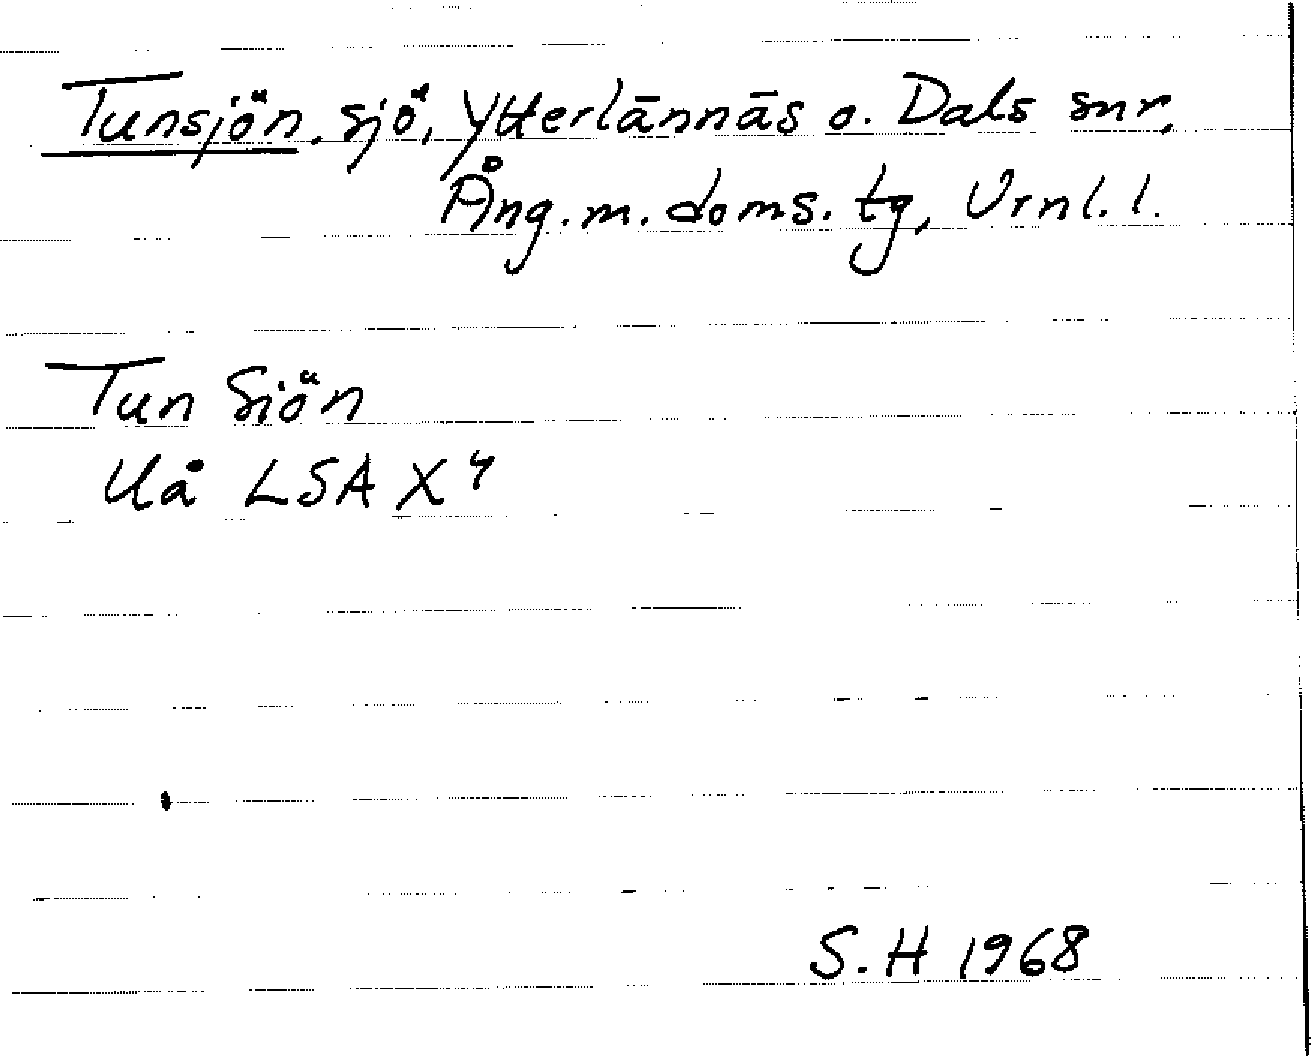 Tunsjön, sjö, Ytterlännäs o. Dals snr,
Ång. m. doms. tg, Vrnl. l.
Tun Siön
Uå LSA X 4
S. H 1968